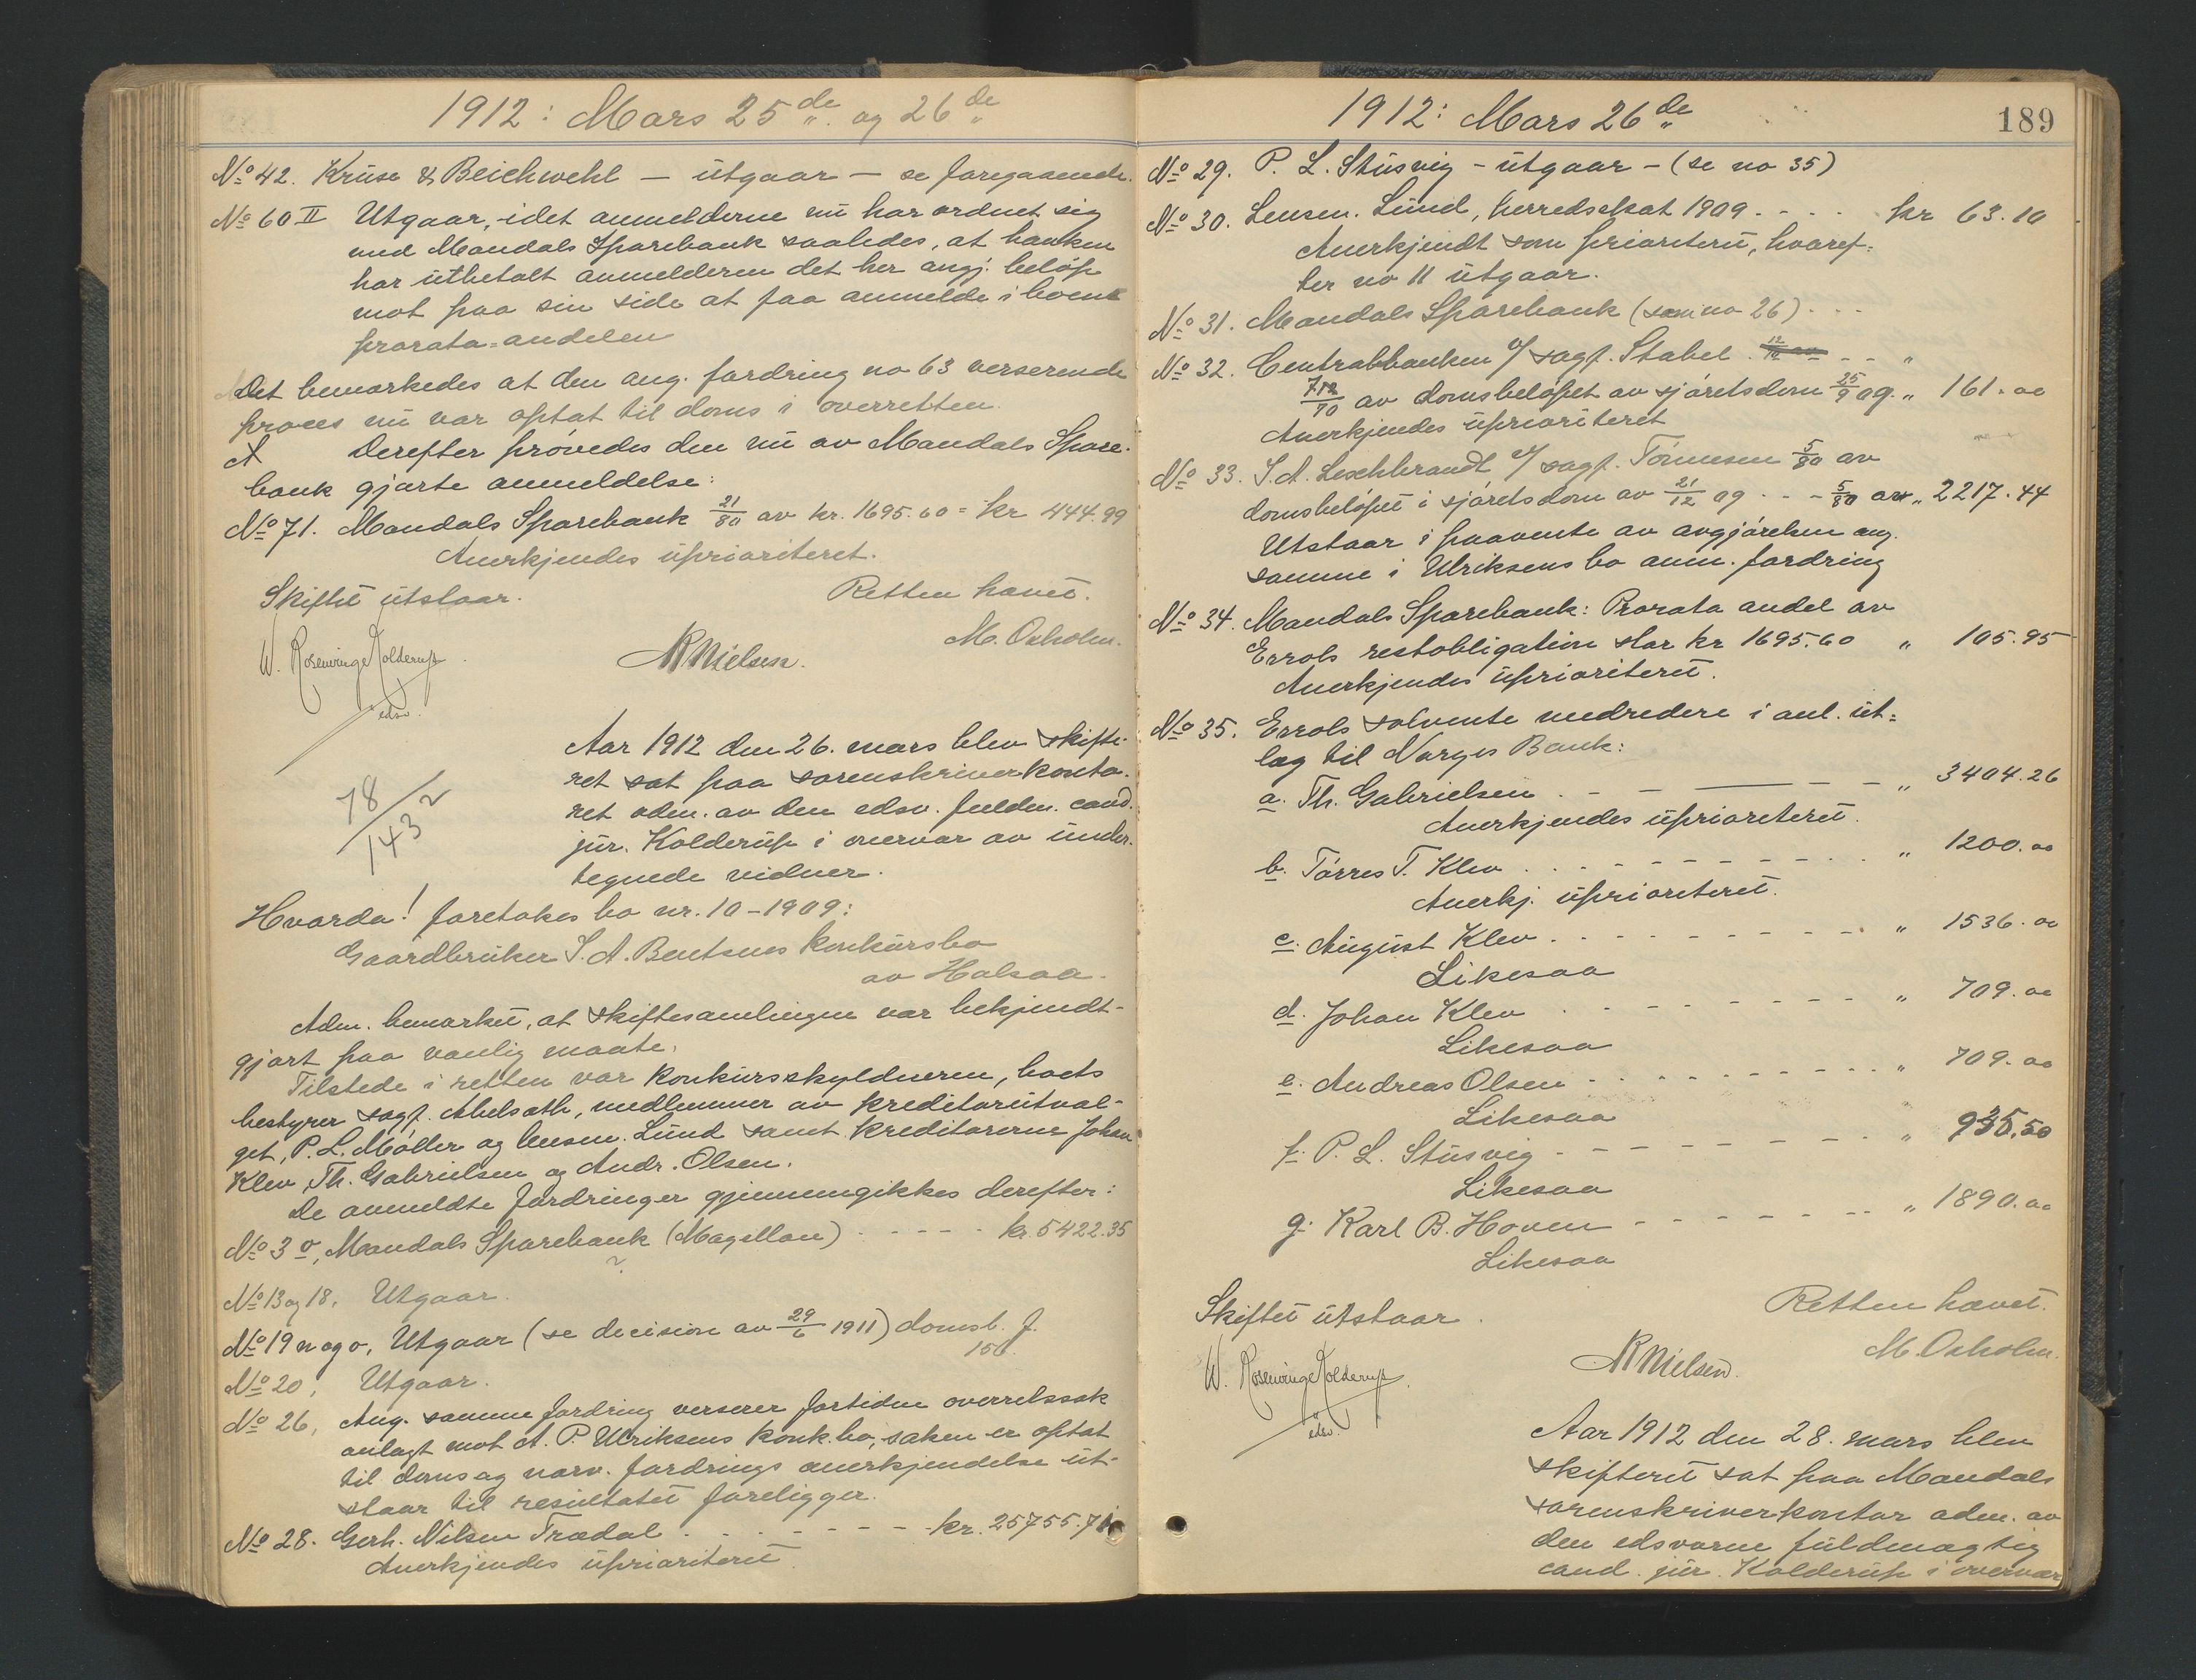 1912: Mars 25de og 26de
No 42. Krüse & Beichwehl — ütgaar — se foregaaende.
No 60 II Utgaar, idet anmelderne nü har ordnet sig
med Mandals Sparebank saaledes, at banken
har ütbetalt anmelderen det her angj. beløp
mot paa sin side at faa anmelde i boene
prorata=andelen
Det bemerkedes at den ang. fordring no 63 verserende
proces nü var optat til doms i overretten.
Derefter prøvedes den nü av Mandals Spare-
bank gjorte anmeldelse:
No 71. Mandals Sparebank 21/80 av kr. 1695.60 = kr 444.99
Anerkjendes üprioriteret.
Skiftet ütstaar. Retten hævet.
W. Rosenvinge Kolderup edsv. NNielsen. M. Oxholm.
Aar 1912 den 26. mars blev skifte-
ret sat paa sorenskriverkonto-
ret adm. av den edsv. fuldm. cand.
jür. Kolderüp i overvær av ünder-
tegnede vidner.
78/143 2
Hvorda! foretokes bo nr. 10-1909:
Gaardbrüker S. A. Bentsens konkürsbo
av Halsaa.
Adm. bemerket, at skiftesamlingen var bekjendt-
gjort paa vanlig maate.
Tilstede i retten var konkürsskyldneren, boets
bestyrer sagf. Abelsøth, medlemmer av kreditorütval-
get, P. L. Møller og lensm. Lünd samt kreditorerne Johan
Klev, Th. Gabrielsen og Andr. Olsen.
De anmeldte fordringer gjennemgikkes derefter:
No 3 o, Mandals Sparebank (Magellan) . - - - - kr. 5422.35
No 13 og 18, Utgaar.
No 19 n og o, Utgaar (se decision av 29/6 1911) domsb. f.
156.
No 20, Utgaar.
No 26, Ang. samme fordring verserer fortiden overretssak
anlagt mot A. P. Ulriksens konk.bo, saken er optat
til doms og nærv. fordrings anerkjendelse üt-
staar til resültatet foreligger.
No 28. Gerh. Nilsen Trædal . . . - - - - kr. 25755.71
Anerkjendes üprioriteret.
1912: Mars 26de
189
No 29. P. L. Stüsvig - ütgaar - (se no 35)
No 30. Lensm. Lünd, herredsskat 1909. - - . . kr 63.10
Anerkjendt som prioriteret, hvoref=
ter no 11 ütgaar.
No 31. Mandals Sparebank (som no 26) . . .
No 32. Centralbanken v/ sagf. Stabel . - - "
av domsbeløpet av sjøretsdom 25/9 09. " 161.00
Anerkjendes üprioriteret
No 33. S. A. v/ sagf. Tønnesen 5/80 av
domsbeløpet i sjøretsdom av 21/12 09 - - - 5/80 av " 2217.44
Utstaar i paavente av avgjørelsen ang.
samme i Ulriksens bo anm. fordring
No 34. Mandals Sparebank: Prorata andel av
Errols restobligation stor kr 1695.60 " 105.95
Anerkjendes üprioriteret.
No 35. Errols solvente medredere i anl. üt=
læg til Norges Bank:
a. Th. Gabrielsen . - - — - - " 3404.26
Anerkjendes üprioriteret.
b. Tørres T. Klev . . - - - - - - " 1200.00
Anerkj. üprioriteret.
c. August Klev . . - - - - - - " 1536.00
Likesaa
d. Johan Klev . - - - - - - " 709.00
Likesaa
e. Andreas Olsen . . - - - - - " 709.00
Likesaa
f. P. L. Stüsvig - - - - - - - " 935.50
Likesaa
g. Karl B. Hoven - - - - - - - " 1890.00
Likesaa
Skiftet ütstaar. Retten hævet.
W. Rosenvinge Kolderup edsv. NNielsen. M. Oxholm.
Aar 1912 den 28. mars blev
skifteret sat paa Mandals
sorenskriverkontor adm. av
den edsvorne füldmægtig
cand. jür. Kolderüp i overvær